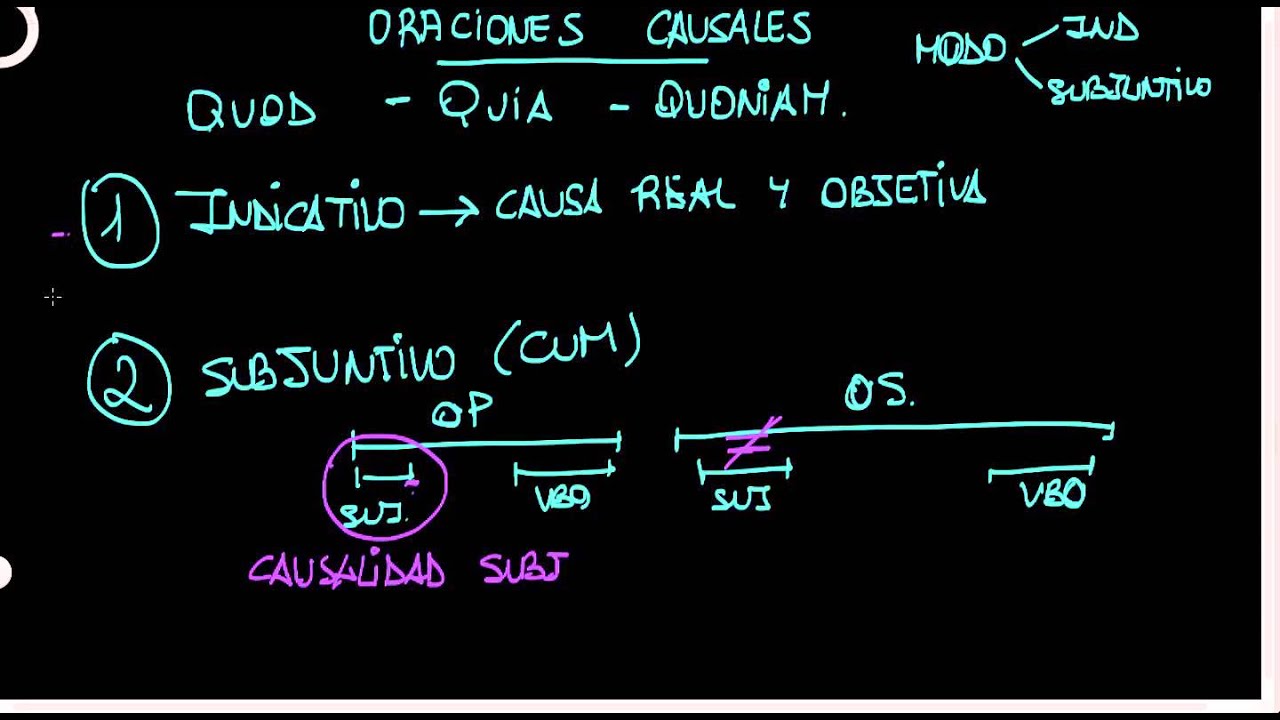 ORACIONES CAUSALES
MODO IND
SUBJUNTIVO
QUOD - QUIA - QUONIAM.
1 INDICATIVO → CAUSA REAL Y OBJETIVA
2 SUBJUNTIVO (CUM)
OP OS.
≠
SUJ. VBO SUJ VBO
CAUSALIDAD SUBJ